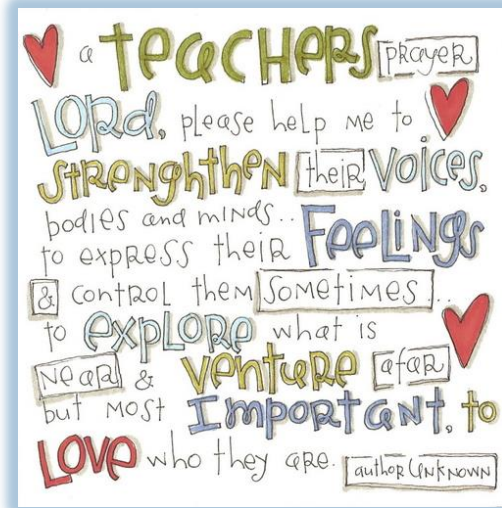 a TEACHERS PRAYER
LORD, please help me to
STRENGHTHEN their Voices,
bodies and minds..
to express their FEELINGS
& control them SOMETIMES...
to EXPLORE what is
NEAR & VENTURE afar
but MOST IMPORTANT, to
LOVE who they are. author UNKNOWN